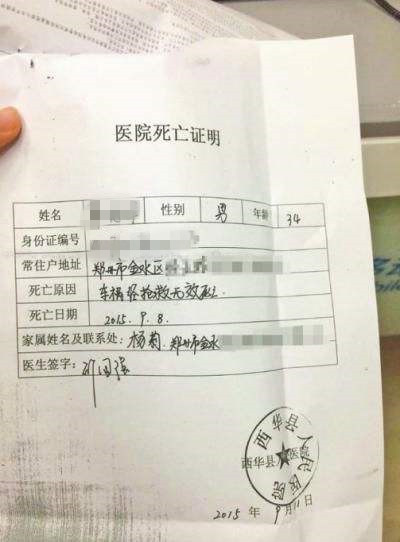 医院死亡证明
姓名 性别 男 年龄 34
身份证编号
常住户地址 郑州市金水区
死亡原因 车祸经抢救无效死亡
死亡日期 2015.9.8.
家属姓名及联系处: 杨菊.郑州市金水
医生签字:
西华县人民医院
西华县人民医院
2015 年 9月11日